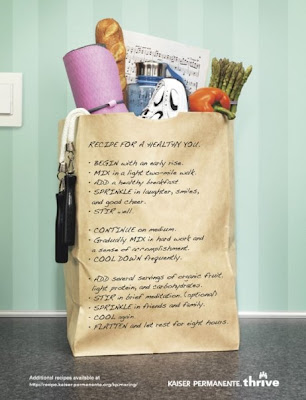 RECIPE FOR A HEALTHY YOU.
• BEGIN with an early rise.
• MIX in a light two-mile walk.
• ADD a healthy breakfast
• SPRINKLE in laughter, smiles,
and good cheer.
• STIR well.
• CONTINUE on medium.
• Gradually MIX in hard work and
a sense of accomplishment.
• COOL DOWN frequently.
• ADD several servings of organic fruit,
light protein, and carbohydrates.
• STIR in brief meditation. (optional)
• SPRINKLE in friends and family.
• COOL again.
• FLATTEN and let rest for eight hours.
Additional recipes available at
KAISER PERMANENTE. thrive